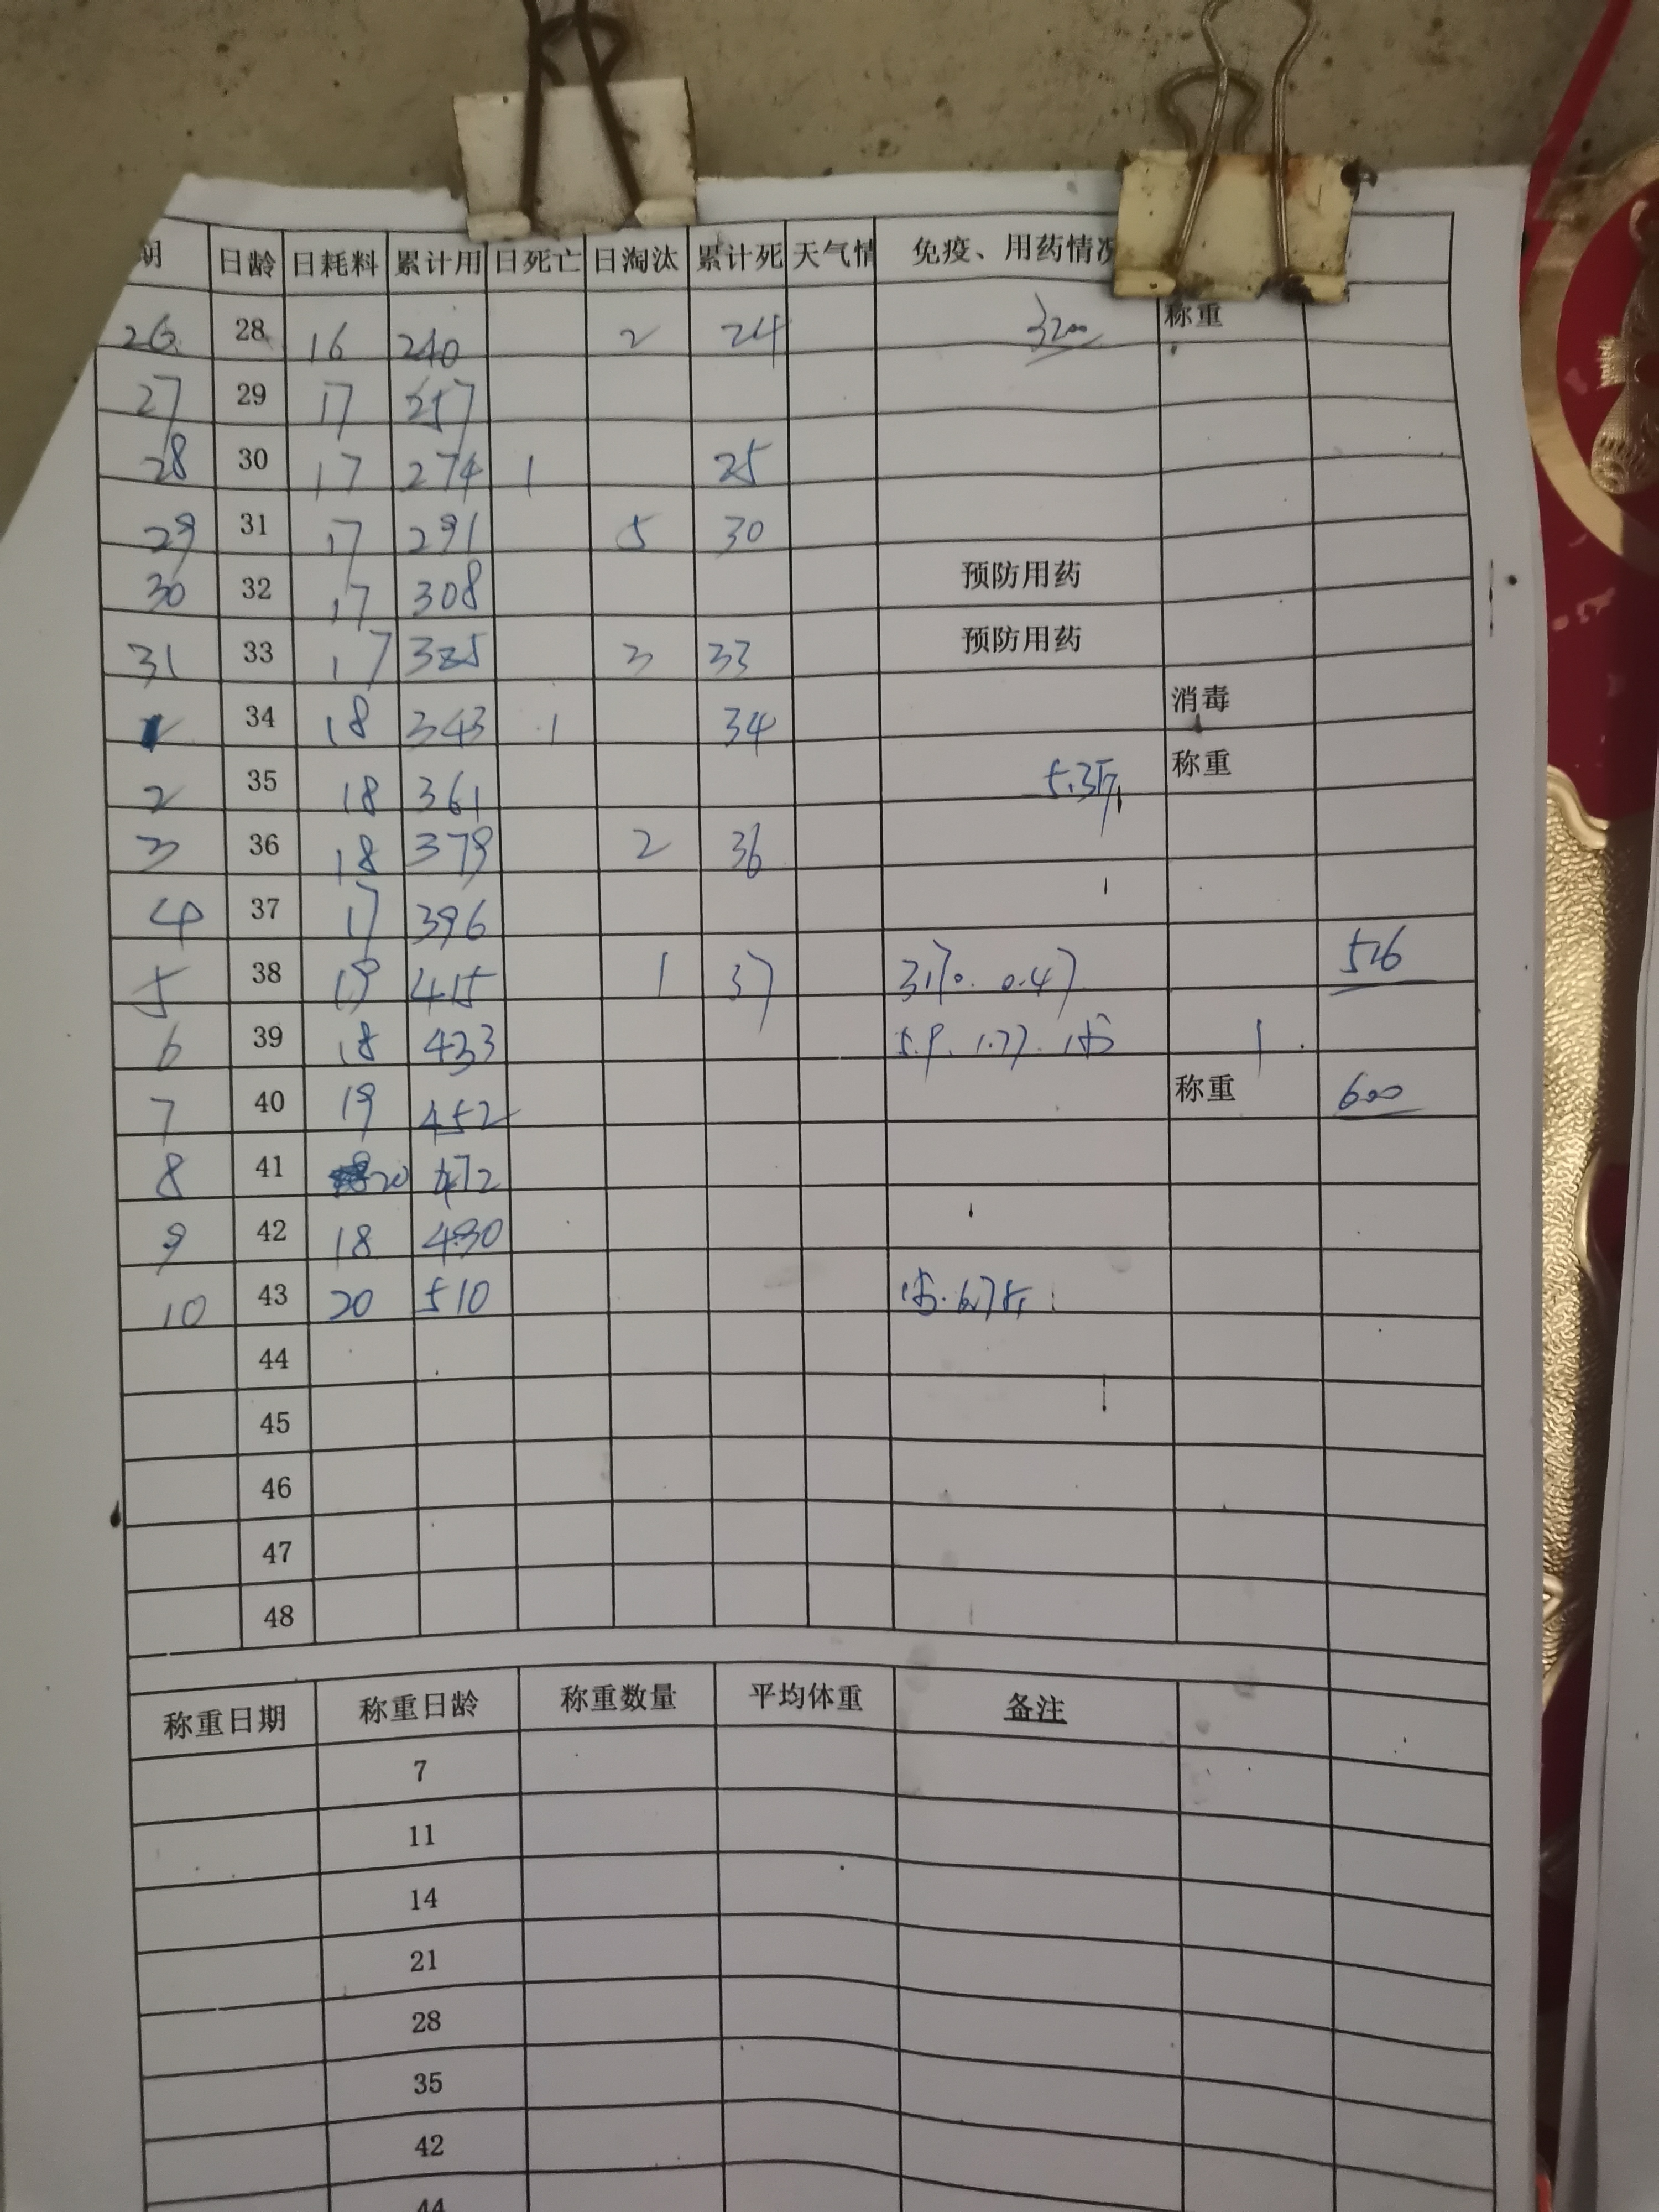 期 日龄 日耗料 累计用 日死亡 日淘汰 累计死 天气情 免疫、用药情况
26 28 16 240 2 24 3200 称重
27 29 17 257
28 30 17 274 1 25
29 31 17 291 5 30
30 32 17 308 预防用药
31 33 17 325 3 33 预防用药
34 18 343 1 34 消毒
2 35 18 361 称重
3 36 18 379 2 36
4 37 17 396
5 38 19 415 1 37 0.47 516
6 39 18 433 5.9. 1.77. 1
7 40 19 452 称重 600
8 41 20 472
9 42 18 490
10 43 20 510
44
45
46
47
48
称重日期 称重日龄 称重数量 平均体重 备注
7
11
14
21
28
35
42
44